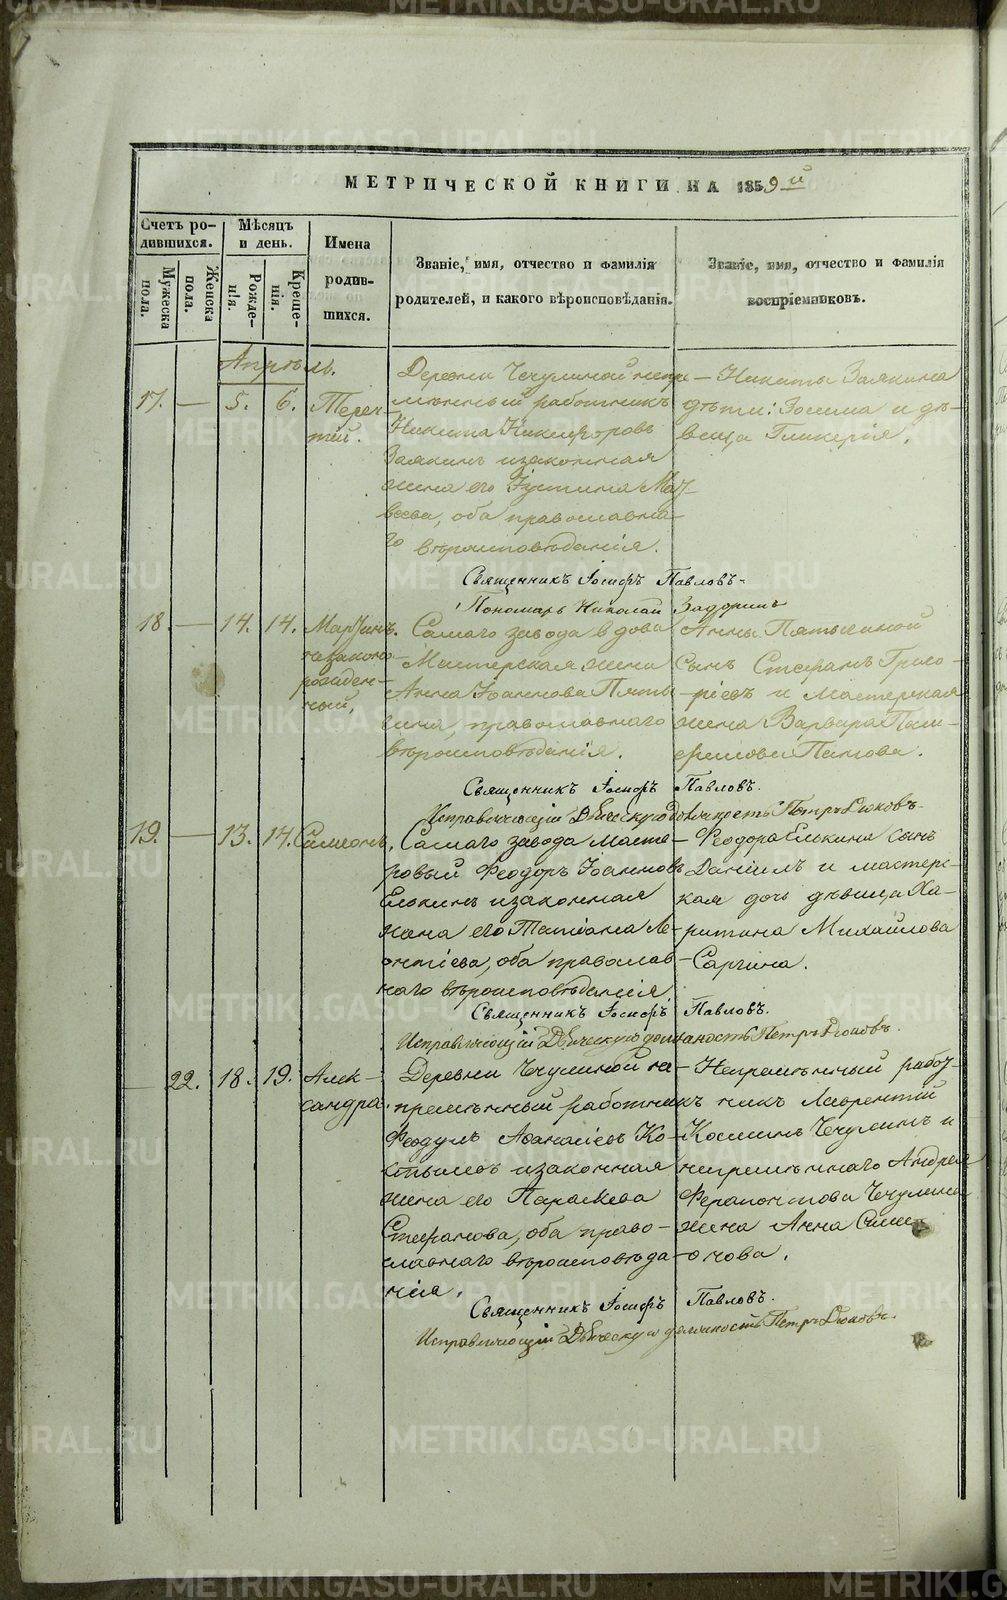 МЕТРИЧЕСКОЙ КНИГИ НА 1859й
Счетъ ро-
дившихся.
Мужеска
пола.
Женска
пола.
Мѣсяцъ
и день.
Рожде-
нія.
Креще-
нія.
Имена
родив-
шихся.
Званіе, имя, отчество и фамилія
родителей, и какого вѣроисповѣданія.
Званіе, имя, отчество и фамилія
воспріемниковъ.
Апрѣль.
17. — 5. 6. Терен-
тій.
Деревни Чечулиной непре-
мѣнный работникъ
Никита Никифоровъ
Заякинъ и законная
жена его Іустинія Мат-
вѣева, оба православна-
го вѣроисповѣданія.
Никиты Заякина
дѣти: Зосима и дѣ-
вица Гликерія.
Священникъ Іосифъ Павловъ.
Пономарь Николай Задоринъ
18. — 14. 14. Мартинъ.
незаконно-
рожден-
ный.
Самаго завода вдова
Мастерская жена
Анна Іоаннова Пять-
кина, православнаго
вѣроисповѣданія.
Анны Пятькиной
сынъ Стефанъ Григо-
ріевъ и Мастерская
жена Варвара Пам-
филова Панова.
Священникъ Іосифъ Павловъ.
Исправляющій Дьяческую должность Петръ
19. — 13. 14. Симеонъ.
Самаго завода масте-
ровый Феодоръ Іоанновъ
Елькинъ и законная
жена его Татіана Ле-
онтіева, оба православ-
наго вѣроисповѣданія
Феодора Елькина сынъ
Даніилъ и мастерс-
кая дочь дѣвица Ха-
ритина Михайлова
Саргина.
Священникъ Іосифъ Павловъ.
Исправляющій Дьяческую должность Петръ
— 22. 18. 19. Алек-
сандра.
Деревни Чечулиной не-
премѣнный работникъ
Феодулъ Аѳанасіевъ Ко-
стылевъ и законная
жена его Параскева
Стефанова, оба право-
славнаго вѣроисповѣда-
нія.
Непремѣнный работ-
никъ Лаврентій
Косминъ Чечулинъ и
непремѣннаго Андрея
Ферапонтова Чечулина
жена Анна Симе-
онова.
Священникъ Іосифъ Павловъ.
Исправляющій Дьяческую должность Петръ
METRIKI.GASO-URAL.RU